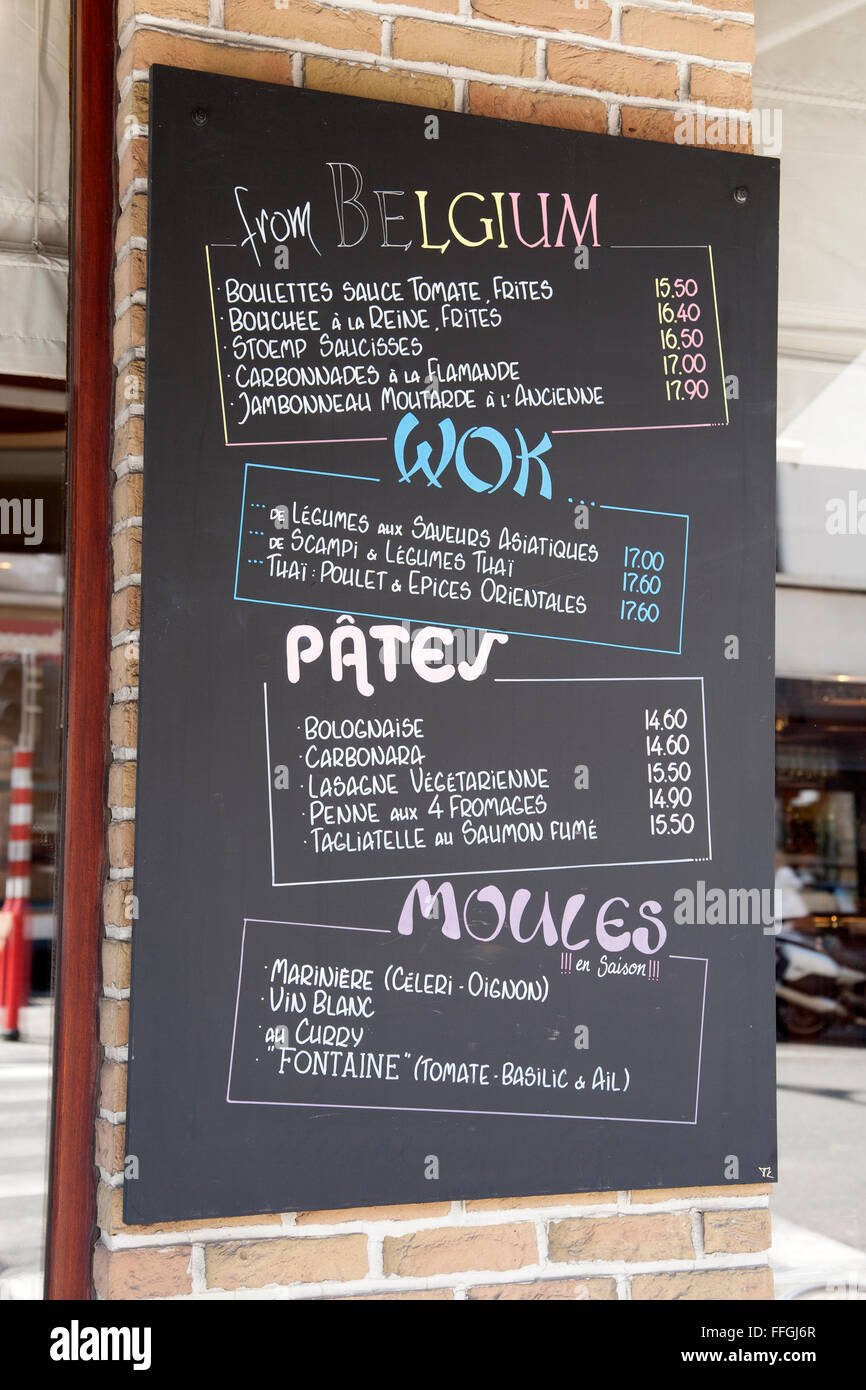 from BELGIUM
· BOULETTES SAUCE TOMATE, FRITES 15.50
· BOUCHEE à LA REINE, FRITES 16.40
· STOEMP SAUCISSES 16.50
· CARBONNADES à LA FLAMANDE 17.00
· JAMBONNEAU MOUTARDE à L'ANCIENNE 17.90
WOK ...
... DE LÉGUMES AUX SAVEURS ASIATIQUES 17.00
... DE SCAMPI & LÉGUMES THAÏ 17.60
... THAÏ : POULET & EPICES ORIENTALES 17.60
PÂTES
· BOLOGNAISE 14.60
· CARBONARA 14.60
· LASAGNE VÉGÉTARIENNE 15.50
· PENNE AUX 4 FROMAGES 14.90
· TAGLIATELLE AU SAUMON FUMÉ 15.50
MOULES
!!! en Saison !!!
· MARINIÈRE (CÉLERI - OIGNON)
· VIN BLANC
· AU CURRY
· "FONTAINE" (TOMATE - BASILIC & AIL)
alamy
Image ID: FFGJ6R
www.alamy.com